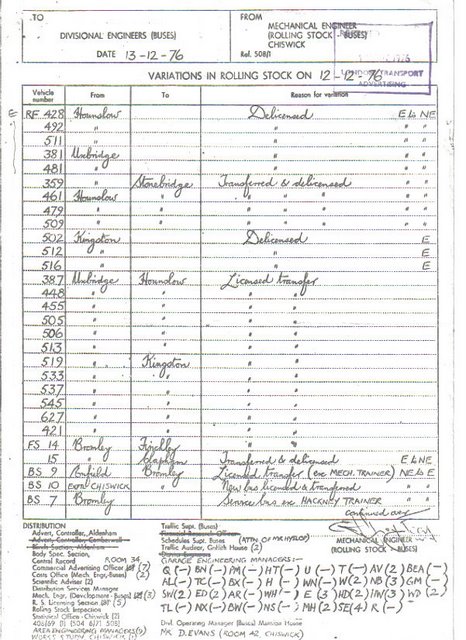 TO
DIVISIONAL ENGINEERS (BUSES)
DATE 13-12-76
FROM
MECHANICAL ENGINEER
(ROLLING STOCK - BUSES)
CHISWICK
Ref. 508/1
LONDON TRANSPORT
ADVERTISING
VARIATIONS IN ROLLING STOCK ON 12-12-76
Vehicle number From To Reason for variation
E RF 428 Hounslow Delicensed E & NE
492 " " " "
511 " " " "
381 Uxbridge " " "
481 " " " "
359 " Stonebridge Transferred & delicensed " "
461 Hounslow " " " " " "
479 " " " " " " "
509 " " " " " " "
502 Kingston Delicensed E
512 " " E
516 " " E
387 Uxbridge Hounslow Licensed transfer
448 " " " "
455 " " " "
505 " " " "
506 " " " "
513 " " " "
519 " Kingston " "
533 " " " "
537 " " " "
545 " " " "
627 " " " "
421 " " " "
FS 14 Bromley Finchley " "
15 " Clapham Transferred & delicensed E & NE
BS 9 Enfield Bromley Licensed transfer (ex MECH. TRAINER) NE & E
BS 10 EX(A) CHISWICK " New bus licensed & transferred " "
BS 7 Bromley Service bus ex HACKNEY TRAINER " "
continued over
MECHANICAL ENGINEER
(ROLLING STOCK - BUSES)
DISTRIBUTION
Advert. Controller, Aldenham
Advert. Controller, Camberwell
Body Spec. Section,
Central Record ROOM 34
Commercial Advertising Officer (7)
Costs Office (Mech. Engr.-Buses) (2)
Scientific Adviser (2)
Distribution Services Manager
Mech. Engr. Development - Buses (3)
R. S. Licensing Section (5)
Rolling Stock Inspection
Statistical Office - Chiswick (2)
AREA ENGINEERING MANAGERS (9)
WORKS STUDY CHISWICK (1)
Traffic Supt. (Buses)
Financial Research Officer
Schedules Supt. Buses (ATTN OF MR HYSLOP)
Traffic Auditor, Griffith House (2)
GARAGE ENGINEERING MANAGERS:-
Q (-) BN (-) PM (-) HT (-) U (-) T (-) AV (2) BEA (-)
AL (-) TC (-) BX (-) H (-) WN (-) W (2) NB (3) GM (-)
SW (2) ED (2) AR (-) WH (-) E (3) HD (2) IN (3) WD (2)
TL (-) NX (-) BW (-) NS (-) MH (2) SE (4) R (-)
Divl. Operating Manager (Buses) Mansion House
Mr D. EVANS (ROOM 42 CHISWICK)